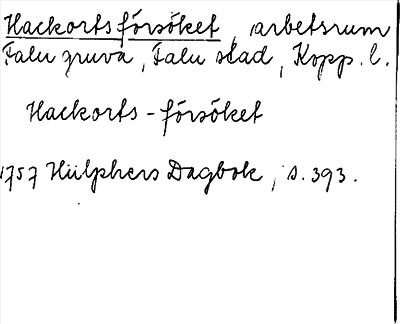 Hackortsförsöket, arbetsrum
Falu gruva, Falu stad, Kopp. l.
Hackorts-försöket
1757 Hülphers Dagbok, s. 393.